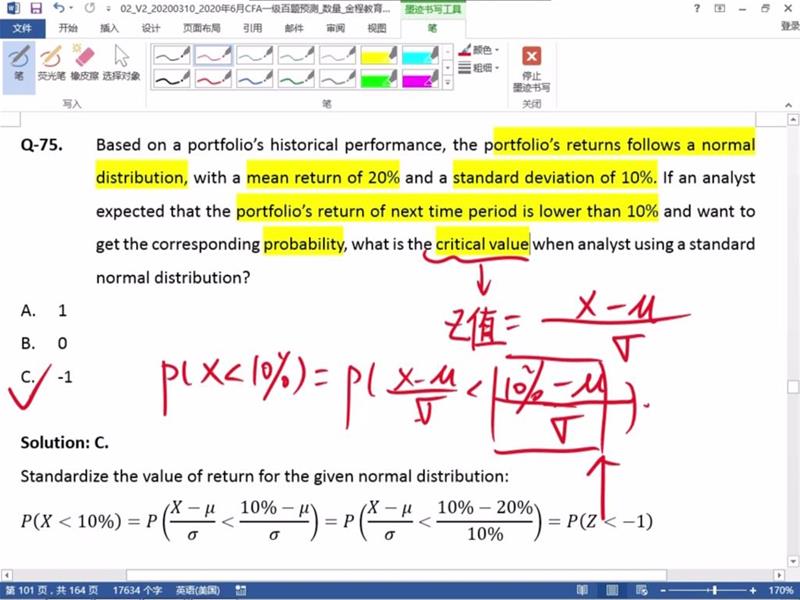 02_V2_20200310_2020年6月CFA一级百题预测_数量_金程教育...
墨迹书写工具
登录
文件 开始 插入 设计 页面布局 引用 邮件 审阅 视图 笔
笔 荧光笔 橡皮擦 选择对象
颜色
粗细
停止
墨迹书写
写入 笔 关闭
Q-75. Based on a portfolio's historical performance, the portfolio's returns follows a normal
distribution, with a mean return of 20% and a standard deviation of 10%. If an analyst
expected that the portfolio's return of next time period is lower than 10% and want to
get the corresponding probability, what is the critical value when analyst using a standard
normal distribution?
A. 1
B. 0
C. -1
Z值 = (X-μ)/σ
P(X<10%) = P( (X-μ)/σ < (10%-μ)/σ ).
Solution: C.
Standardize the value of return for the given normal distribution:
P(X < 10%) = P((X − μ)/σ < (10% − μ)/σ) = P((X − μ)/σ < (10% − 20%)/10%) = P(Z < −1)
第 101 页，共 164 页 17634 个字 英语(美国) 170%